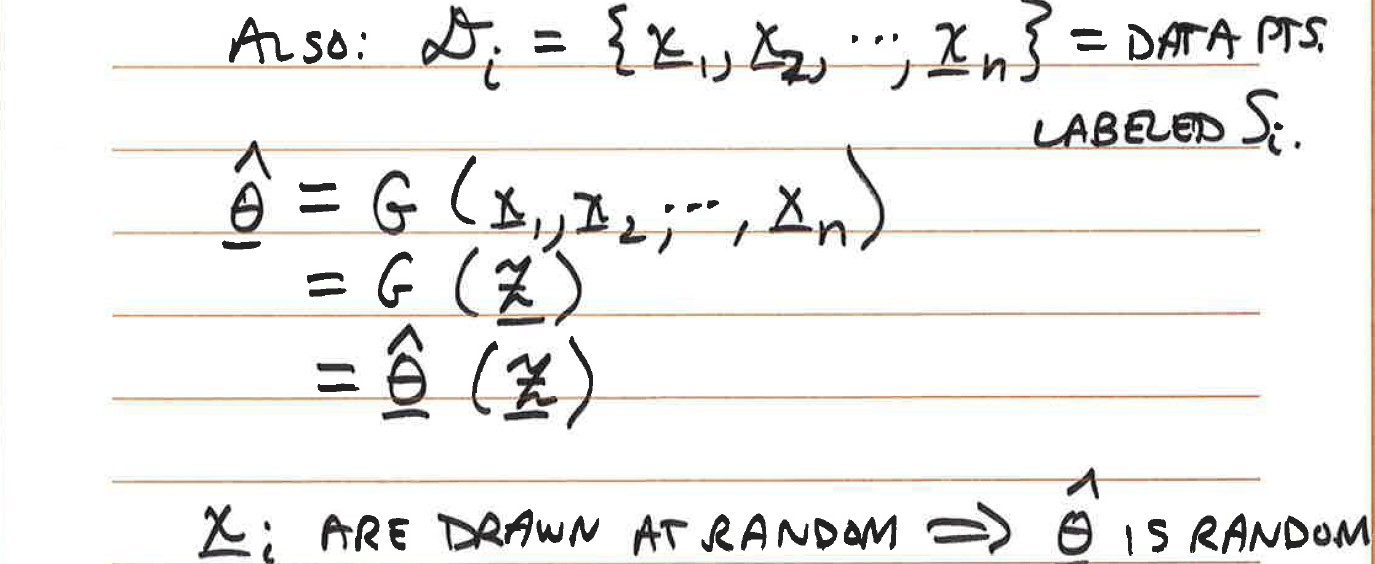 ALSO: 𝒟ᵢ = {x̲₁, x̲₂, ..., x̲ₙ} = DATA PTS.
LABELED Sᵢ.
θ̲̂ = G (x̲₁, x̲₂, ..., x̲ₙ)
= G (z̲)
= θ̲̂ (z̲)
x̲ᵢ ARE DRAWN AT RANDOM ⇒ θ̲̂ IS RANDOM